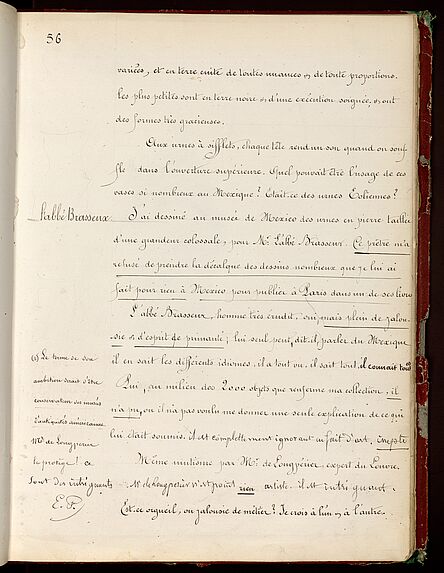 56
variées, et en terre cuite de toutes nuances & de toute proportions.
les plus petites sont en terre noire & d'une exécution soignée, & ont
des formes très gracieuses.
Aux urnes à sifflets, chaque tête rend un son quand on souf
fle dans l'ouverture supérieure. Quel pouvait être l'usage de ces
vases si nombreux au Mexique? Etait-ce des urnes Eoliennes?
L'abbé Brasseux
J'ai dessiné au musée de Mexico des urnes en pierre taillée
d'une grandeur colossale, pour Mr. L'abbé Brasseur. Ce prêtre m'a
refusé de peindre la décalque des dessins nombreux que je lui ai
fait pour rien à Mexico pour publier à Paris dans un de ses livres
L'abbé Brasseur, homme très érudit, oui mais plein de jalou
sie & d'esprit de primauté; lui seul peut, dit-il, parler du Mexique
il en sait les différents idiomes, il a tout vu, il sait tout, il connait tout
Lui, au milieu des 2000 objets que renferme ma collection, il
n'a pu, on il n'a pas voulu me donner une seule explication de ce qui
lui était soumis. il est complettement ignorant en fait d'art. inepte
Même mutisme par Mr. de Longpérier, expert du Louvre.
Mr de Longpérier n'est point rien artiste. il est intrigant.
Est-ce orgueil, ou jalousie de métier? Je crois à l'un & à l'autre.
(1) Le terme de son
ambition serait d'être
conservateur des musées
d'antiquités américaines
Mr de Longpérier
le protège! ce
sont des intrigants
E. P.